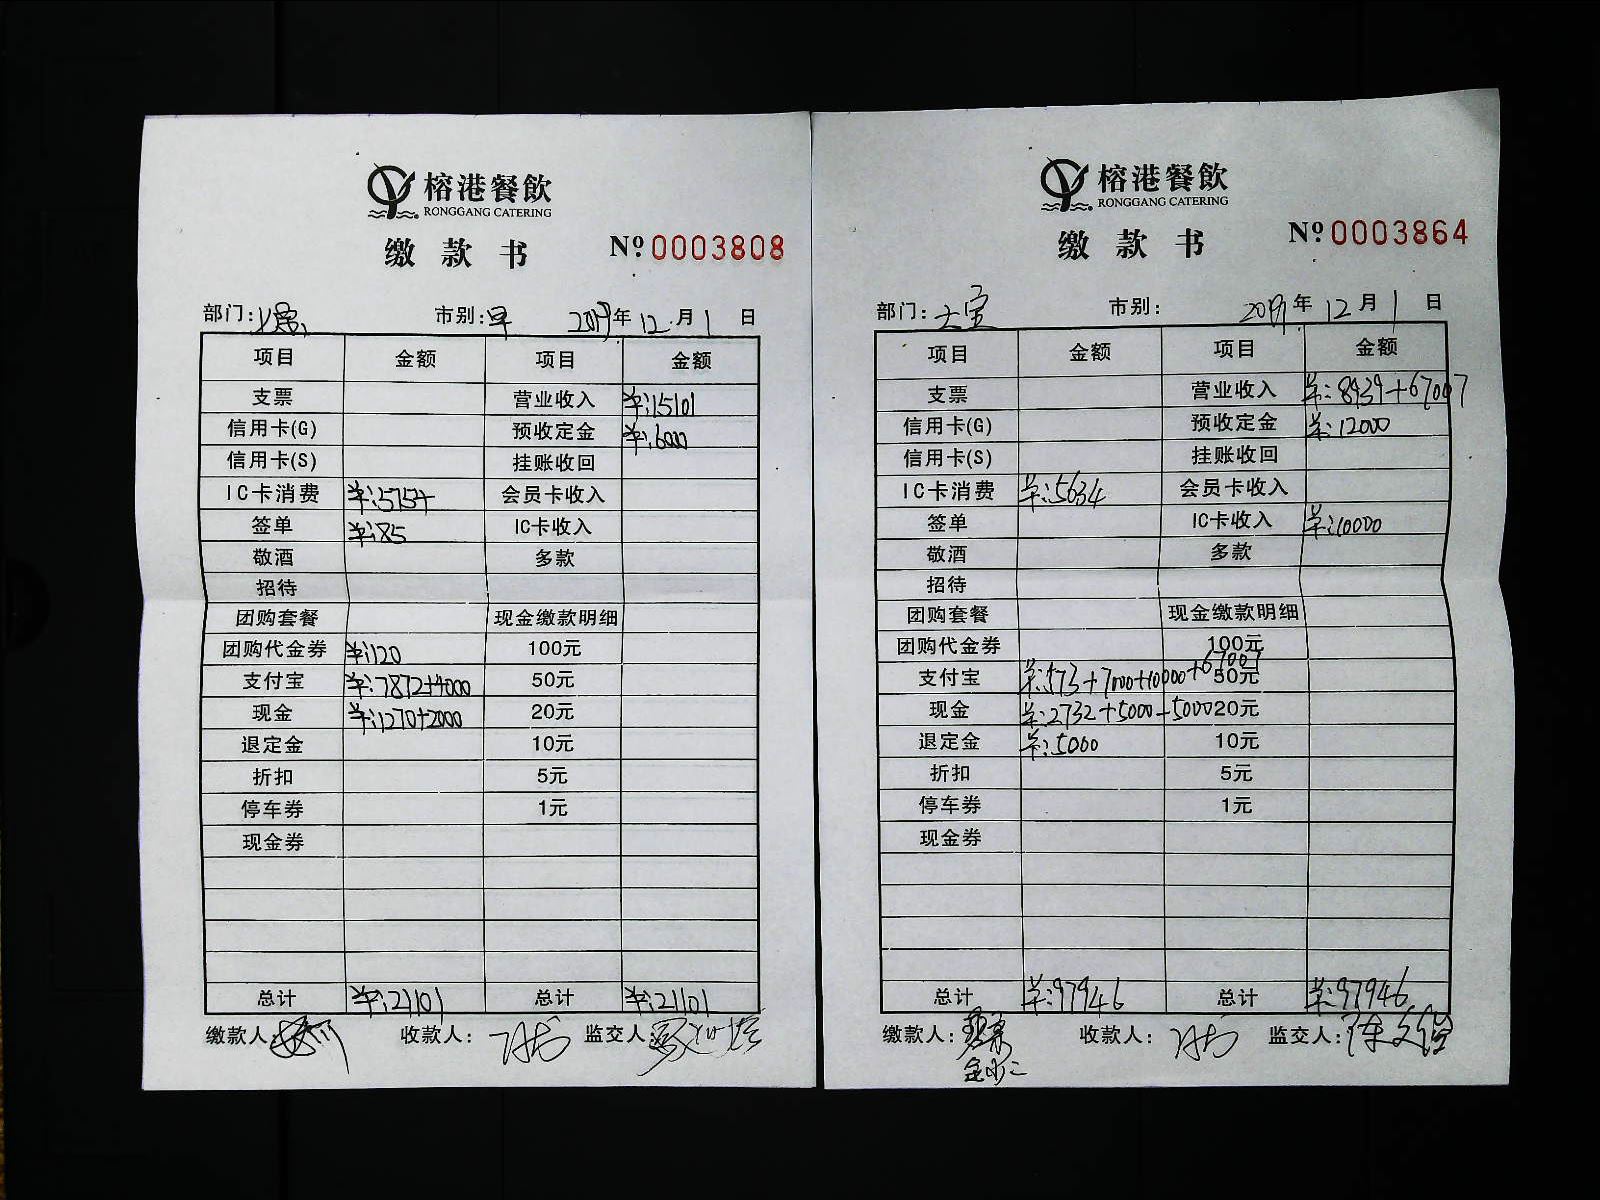 榕港餐飲
RONGGANG CATERING
缴款书 Nº 0003808
部门: 市别:早 2019年12月1日
项目 金额 项目 金额
支票 营业收入 羊:15101
信用卡(G) 预收定金 羊:6000
信用卡(S) 挂账收回
IC卡消费 羊:5754 会员卡收入
签单 羊:85 IC卡收入
敬酒 多款
招待
团购套餐 现金缴款明细
团购代金券 羊:120 100元
支付宝 羊:7872+4000 50元
现金 羊:1270+2000 20元
退定金 10元
折扣 5元
停车券 1元
现金券
总计 羊:21101 总计 羊:21101
缴款人: 收款人: 监交人:
榕港餐飲
RONGGANG CATERING
缴款书 Nº 0003864
部门: 大宝 市别: 2019年12月1日
项目 金额 项目 金额
支票 营业收入 羊:8939+67007
信用卡(G) 预收定金 羊:12000
信用卡(S) 挂账收回
IC卡消费 羊:5634 会员卡收入
签单 IC卡收入 羊:10000
敬酒 多款
招待
团购套餐 现金缴款明细
团购代金券 100元
支付宝 羊:573+7000+10000+67007 50元
现金 羊:2732+5000-5000 20元
退定金 羊:5000 10元
折扣 5元
停车券 1元
现金券
总计 羊:97946 总计 羊:97946
缴款人: 收款人: 监交人: